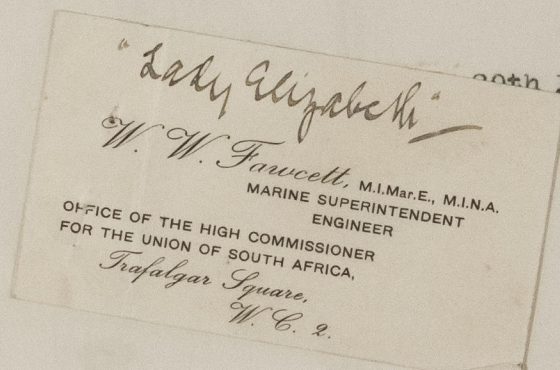 "Lady Elizabeth"
20th
W. W. Fawcett, M.I.Mar.E., M.I.N.A.
MARINE SUPERINTENDENT
ENGINEER
OFFICE OF THE HIGH COMMISSIONER
FOR THE UNION OF SOUTH AFRICA,
Trafalgar Square,
W. C. 2.